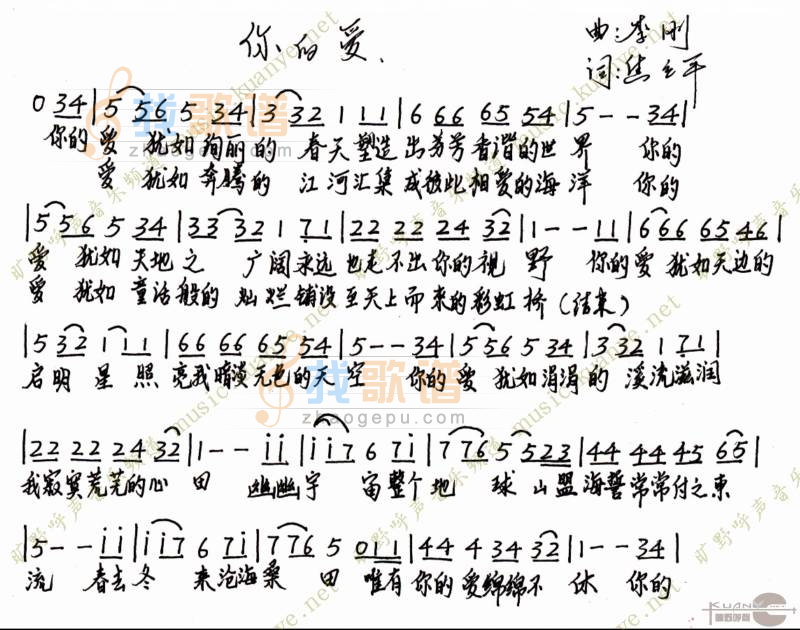 你的爱
曲:李刚
词:焦立平
0 34 | 5 56 5 34 | 3 32 1 11 | 6 66 65 54 | 5 - - 34 |
你的爱 犹如绚丽的 春天塑造出芬芳香谐的世界 你的
爱 犹如奔腾的 江河汇集成彼此相爱的海洋 你的
| 5 56 5 34 | 33 32 1 71 | 22 22 24 32 | 1 - - 11 | 666 65 46 |
爱 犹如天地之 广阔永远也走不出你的视野 你的爱犹如天边的
爱 犹如童话般的 灿烂铺设至天上而来的彩虹桥(结束)
| 5 32 1 11 | 66 66 65 54 | 5 - - 34 | 5 56 5 34 | 3 32 1 71 |
启明星照亮我暗淡无色的天空 你的爱 犹如涓涓的 溪流滋润
| 22 22 24 32 | 1 - - ii | ii7 6 7i | 776 5 523 | 44 44 45 65 |
我寂寞荒芜的心田 幽幽宇 宙整个地 球 山盟海誓常常付之东
| 5 - - ii | ii7 6 7i | 776 5 011 | 44 4 34 32 | 1 - - 34 |
流 春去冬 来沧海桑 田 唯有你的爱绵绵不 休 你的
找歌谱
zhaogepu.com
找歌谱
zhaogepu.com
旷野呼声音乐频道 music.kuanye.net
KUANYE
旷野呼声